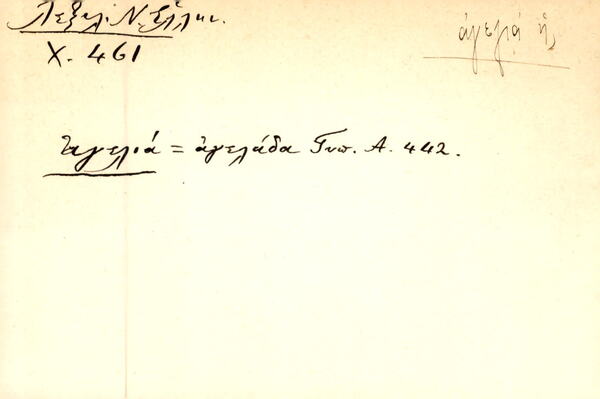 Λεξικ. Ν. Ἑλλην.
Χ. 461
ἀγελιά ἡ
Ἀγελιά = ἀγελάδα Γυπ. Α. 442.